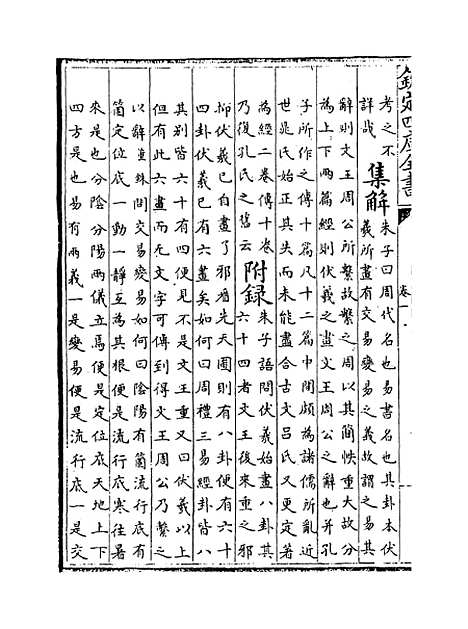 欽定四庫全書
卷一
考之不
詳哉
集解
朱子曰周代名也易書名也其卦本伏
羲所畫有交易變易之義故謂之易其
解則文王周公所繫故繫之周以其簡帙重大故分
為上下兩篇經則伏羲之畫文王周公之辭也并孔
子所作之傳十篇凡十二篇中間頗為諸儒所亂近
世晁氏始正其失而未能盡合古文呂氏又更定著
為經二卷傳十卷
乃復孔氏之舊云
附録
朱子語問伏羲始畫八卦其
六十四者文王後來重之邪
抑伏羲已自畫了邪看先天圖則有八卦便有六十
四卦伏羲已有六畫矣如何曰周禮三易經卦皆八
其別皆六十有四便見不是文王重又曰伏羲以上
但有此六畫而无文字可傳到得文王周公乃繫之
以辭董銖問交易變易如何曰陰陽有箇流行底有
箇定位底一動一靜互為其根便是流行底寒往暑
來是也分陰分陽兩儀立焉便是定位底天地上下
四方是也易有兩義一是變易便是流行底一是交